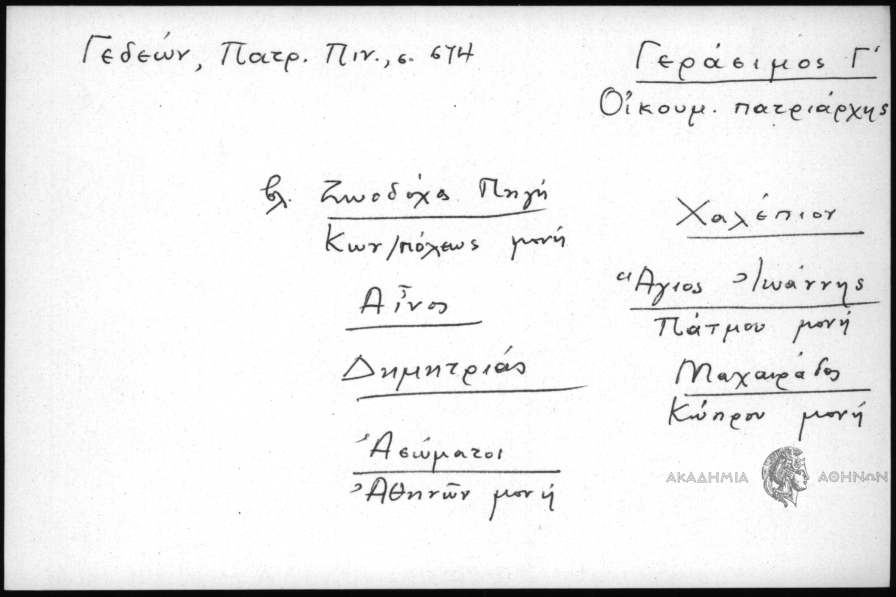 Γεδεών, Πατρ. Πιν., σ. 674
Γεράσιμος Γ'
Οἰκουμ. πατριάρχης
βλ. Ζωοδόχος Πηγή
Κων/πόλεως μονή
Αἶνος
Δημητριάς
Ἀσώματοι
Ἀθηνῶν μονή
Χαλέπιον
Ἅγιος Ἰωάννης
Πάτμου μονή
Μαχαιρᾶδος
Κύπρου μονή
ΑΚΑΔΗΜΙΑ ΑΘΗΝΩΝ